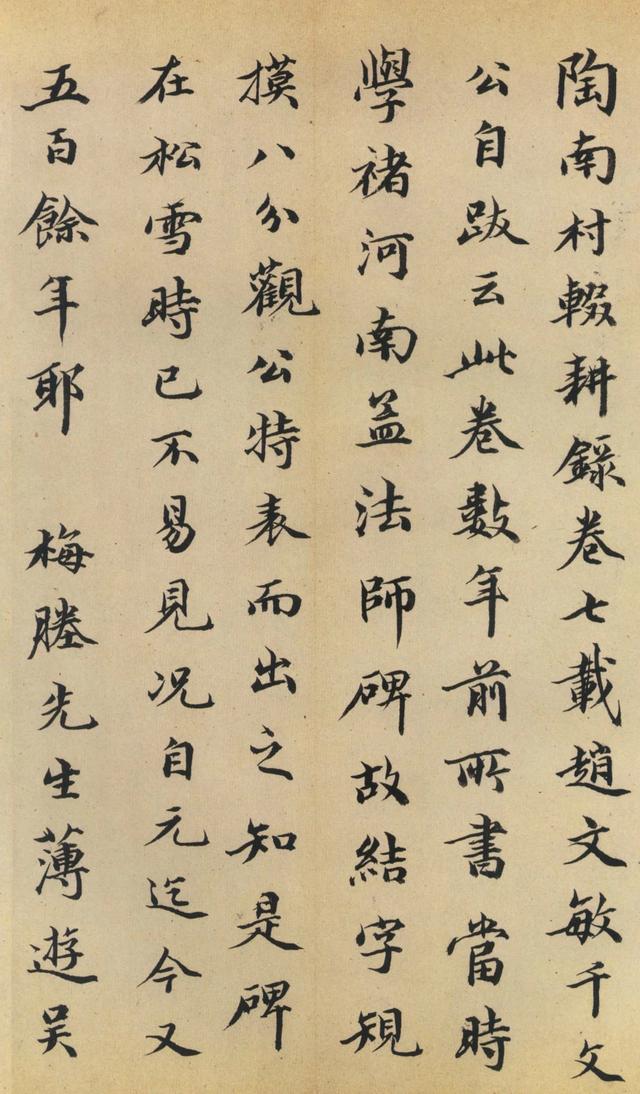 陶南村輟耕錄卷七載趙文敏千文
公自跋云此卷數年前所書當時
學褚河南孟法師碑故結字規
摸八分觀公特表而出之知是碑
在松雪時已不易見况自元迄今又
五百餘年耶 梅塍先生薄遊吴